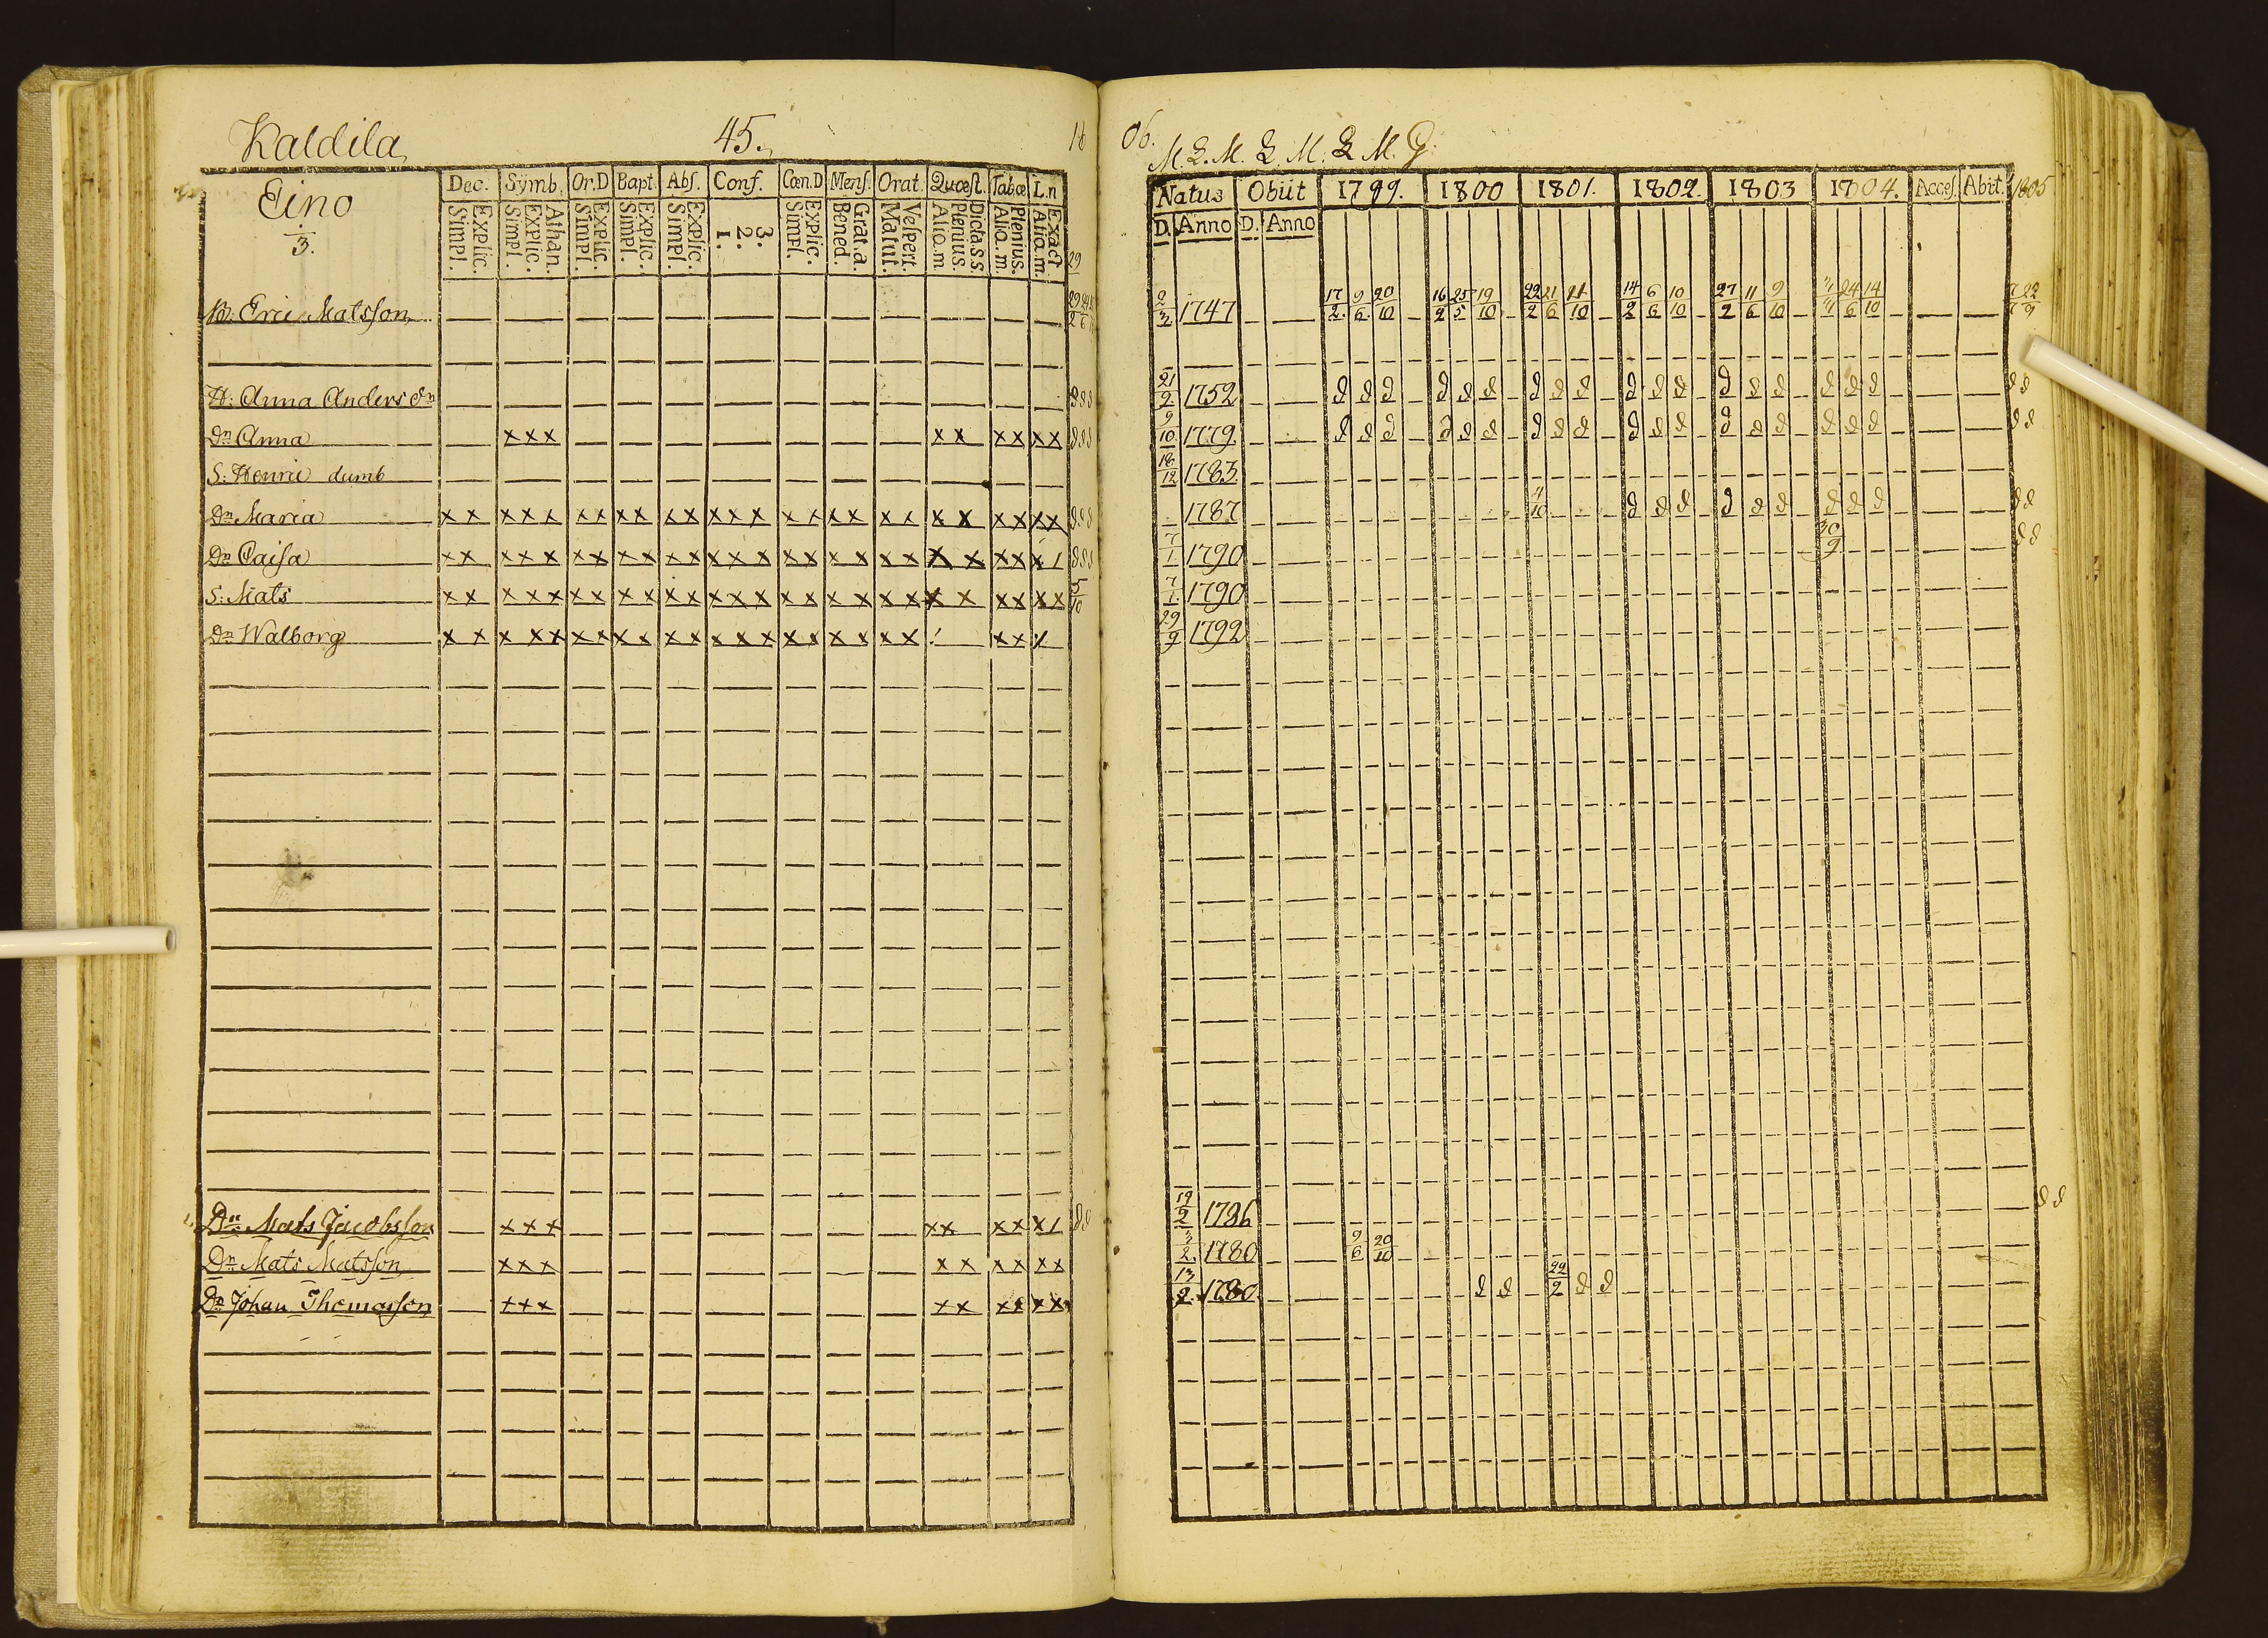 Kaldila 45. 18
Eino
3.
Dec. Symb. Or.D Bapt. Abs. Conf. Cœn.D Mens. Orat. Quæst. Tabœ L.n
Simpl. Explic. Simpl. Explic. Athan. Simpl. Explic. Simpl. Explic. Simpl. Explic. 1. 2. 3. Simpl. Explic. Bened. Grat.a. Matut. Vespert. Alio.m Plenius. Dicta.s.s Alia.m. Plenius. Alia.m. Exact
Eric Matsson
H: Anna Anders dr
Dr Anna xxx xx xx xx
S: Henric dumb
Dr Maria xx xxx xx xx xx xxx xx xx xx xx xx xx
Dr Caisa xx xxx xx xx xx xxx xx xx xx xx xx x1
S: Mats xx xxx xx xx xx xxx xx xx xx xx xx xx 5/10
Dr Walborg xx xxx xx xx xx xxx xx xx xx xx
Dr. Mats Jacobsson xxx xx xx x1
Dr. Mats Matsson xxx xx xx xx
Dr Johan Thomasson xxx xx xx xx
06.
Natus Obiit 1799. 1800 1801. 1802. 1803 1804. Acces. Abit. 1805
D. Anno D. Anno
2/3 1747 17/2 9/6 20/10 16/2 25/5 19/10 22/2 21/6 11/10 14/2 6/6 10/10 27/2 11/6 9/10 24/6 14/10
21/2 1752
9/10 1779
18/12 1783
1787 4/10
7/1 1790 30/9
7/1 1790
29/9 1792
19/2 1786
3/2 1780 9/6 20/10
13/2 1780 22/2